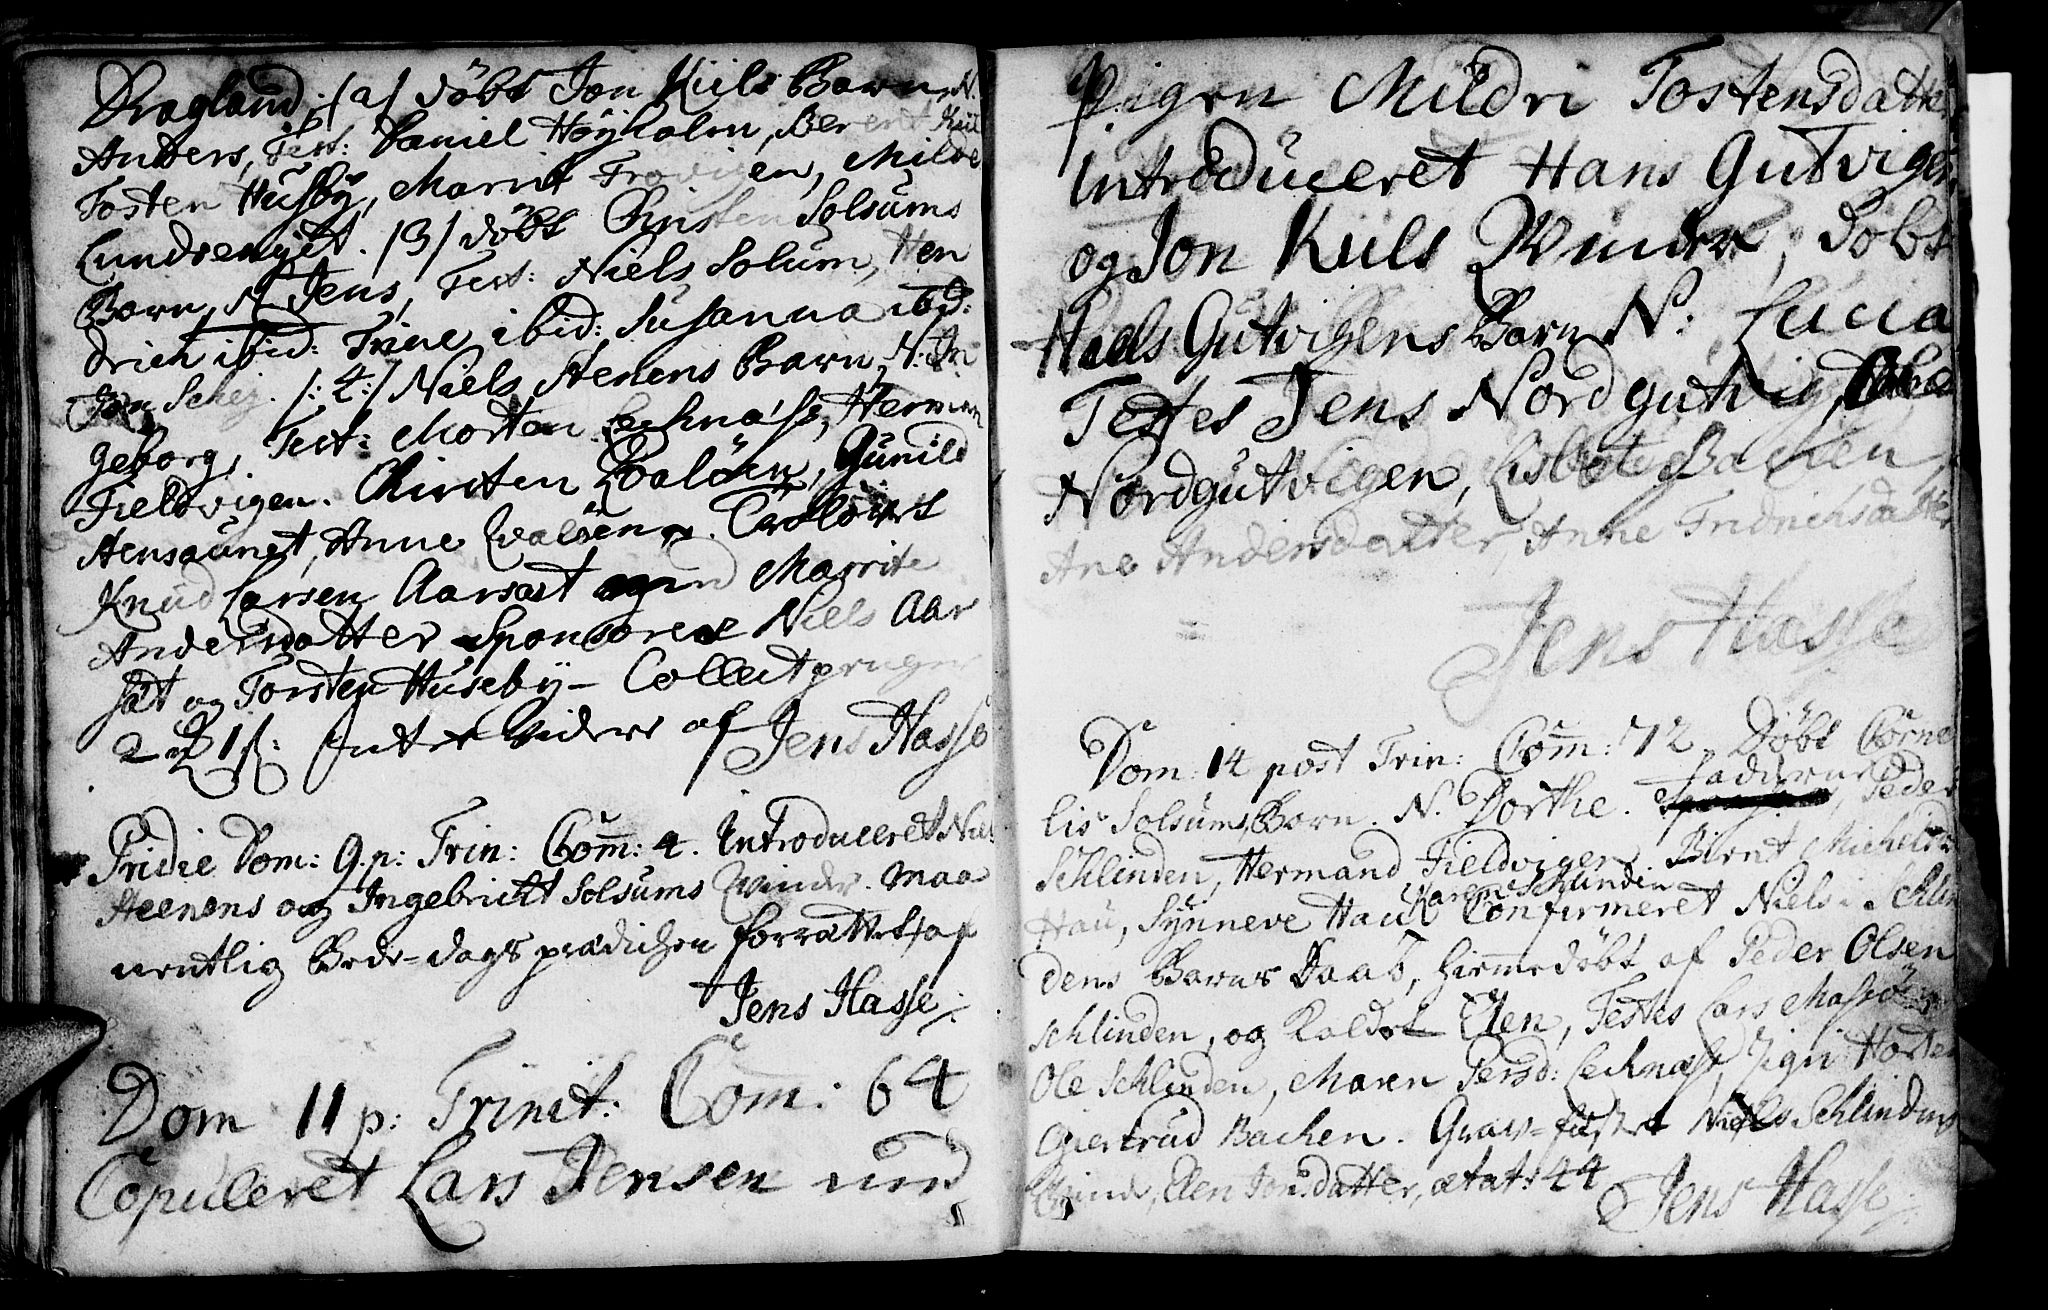 Dragland. /a/ döbt Jon Kiils Barn, N.
Anders, Test: Daniel Höyholm, Berent Kiil
Tosten Husby, Marrit Frovigen, Milde
Lundsenget. /3/ döbt Christen Solsums
Barn, N Jens, Test: Niels Solum, Hen
drich ibid: Trine ibid: Susanna ibid:
Jon Schej. /:4:/ Niels Stenens Barn, N: In
geborg, Test: Morten Lechnæss, Herman
Fieldvigen. Christen Qvaløen, Gunild
Stensaunet, Anne Qvaløen. Trolovet
Knud Larsen Aarsæt med Marrite
Andersdatter, Sponsores Niels Aar
sæt og Torsten Huseby - Collect penger
2 1 ß: Intet videre af Jens Hasse
Pridie Dom: 9. p: Trin: Com: 4. Introduceret Niels
Steenens og Ingebricht Solsums Qvinder. Maa
nentlig Bede-dags prædichen forrættet af
Jens Hasse
Dom 11 p: Trinit: Com: 64
Copuleret Lars Jensen med
Pigen Mildri Tostensdatter
Introduceret Hans Gutvigens
og Jon Kiils Qvinder, Döbt
Niels Gutvigens Barn N: Lucia
Testes Jens Nordgutvig,
Nordgutvigen, Lisbet Bachen
Ane Andersdatter, Anne Fridrichsdatter
Jens Hasse
Dom: 14 post Trin: Com: 72. Döbt Corne
lis Solsums Barn. N. Dorthe. Fadderne, Peder
Schlinden, Hermand Fieldvigen. Birnt Michels
Karen Schlinden
Hau, Synneve Hau. Confirmeret Niels i Schlin
dens Barns Daab, hiemmedöbt af Peder Olsen
Schlinden, og Kaldet Elen, Testes Lars Massö
Ole Schlinden, Maren Persd: Lechnæss, Sigri Horten
Giertrud Bachen. Grav-fæstet Niels Schlindens
Qvinde, Elen Jonsdatter, ætat: 44
Jens Hasse